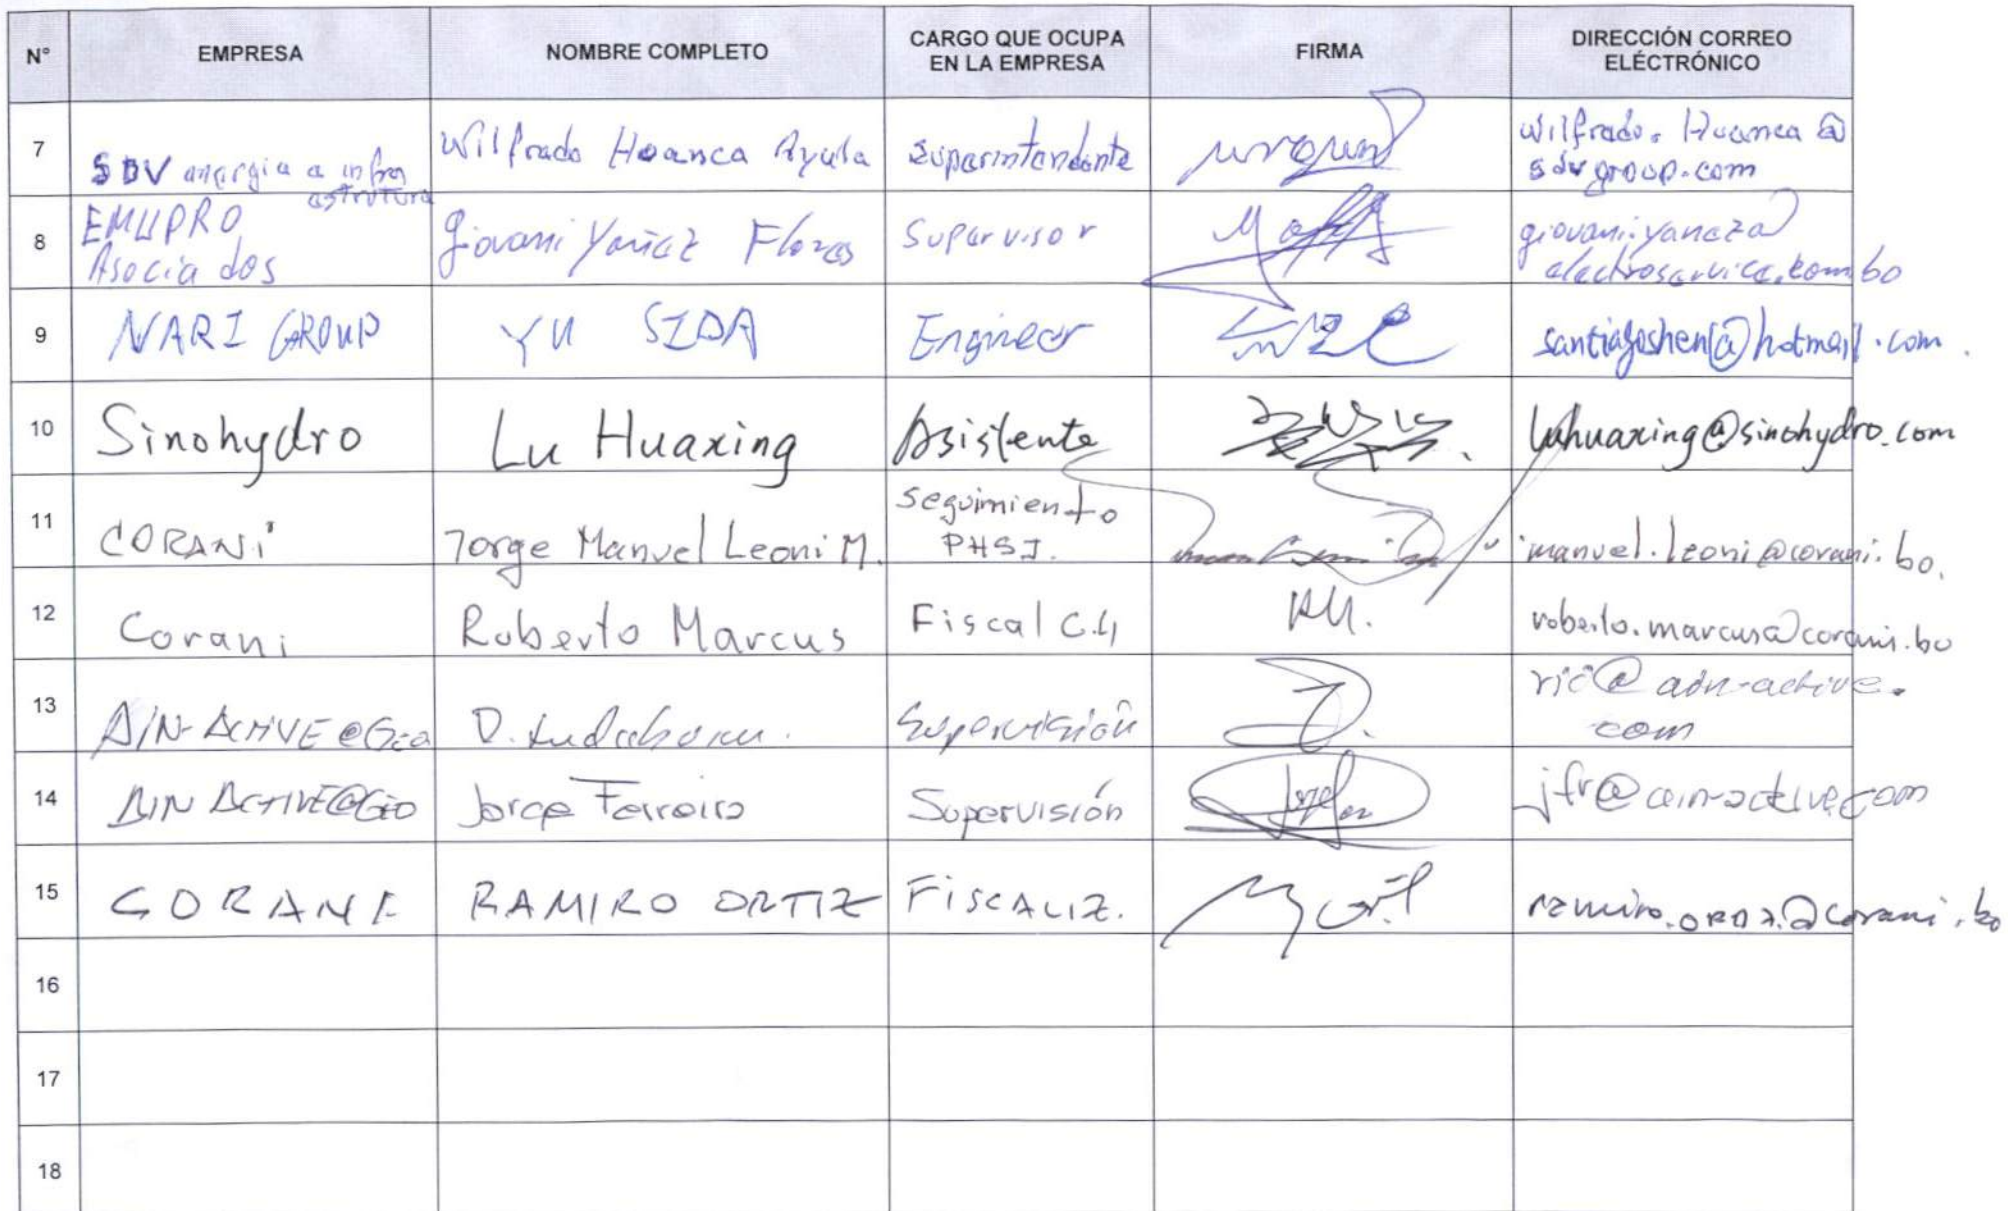 N° EMPRESA NOMBRE COMPLETO CARGO QUE OCUPA EN LA EMPRESA FIRMA DIRECCIÓN CORREO ELÉCTRÓNICO
7 SDV energia e infra estrutura Wilfrado Hoanca Ayala Superintendente wilfrado.Huanca@ sdvgroup.com
8 EMUPRO Asociados Giovani Yañez Flores Supervisor giovani.yanez@ electroservice.com.bo
9 NARI GROUP YU SIDA Engineer santiagoshen@hotmail.com
10 Sinohydro Lu Huaxing Asistente luhuaxing@sinohydro.com
11 CORANI Jorge Manuel Leoni M. Seguimiento PHSJ. manuel.leoni@corani.bo.
12 Corani Roberto Marcus Fiscal C.4 RM. roberto.marcus@corani.bo
13 AIN-ACTIVE@Geo D. Supervisión ric@ain-active. com
14 AIN ACTIVE@GEO Jorge Ferreiro Supervisión jfr@ain-active.com
15 CORANI RAMIRO ORTIZ FISCALIZ. ramiro.ortiz@corani.bo
16
17
18